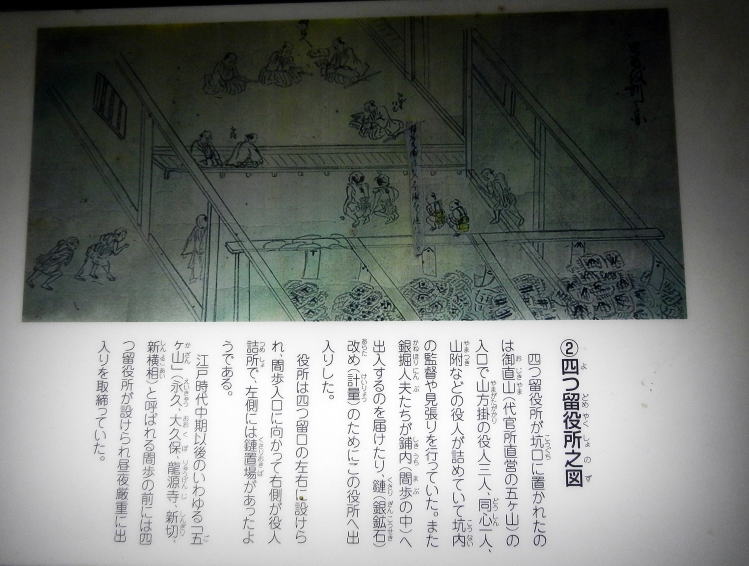 ②四つ留役所之図
四つ留役所が坑口に置かれたの
は御直山(代官所直営の五ヶ山)の
入口で山方掛の役人三人、同心一人、
山附などの役人が詰めていて坑内
の監督や見張りを行っていた。また
銀掘人夫たちが鋪内(間歩の中)へ
出入するのを届けたり、𨫤(銀鉱石)
改め(計量)のためにこの役所へ出
入りした。
役所は四つ留口の左右に設けら
れ、間歩入口に向かって右側が役人
詰所で、左側には𨫤置場があったよ
うである。
江戸時代中期以後のいわゆる「五
ヶ山」(永久、大久保、龍源寺、新切、
新横相)と呼ばれる間歩の前には四
つ留役所が設けられ昼夜厳重に出
入りを取締っていた。